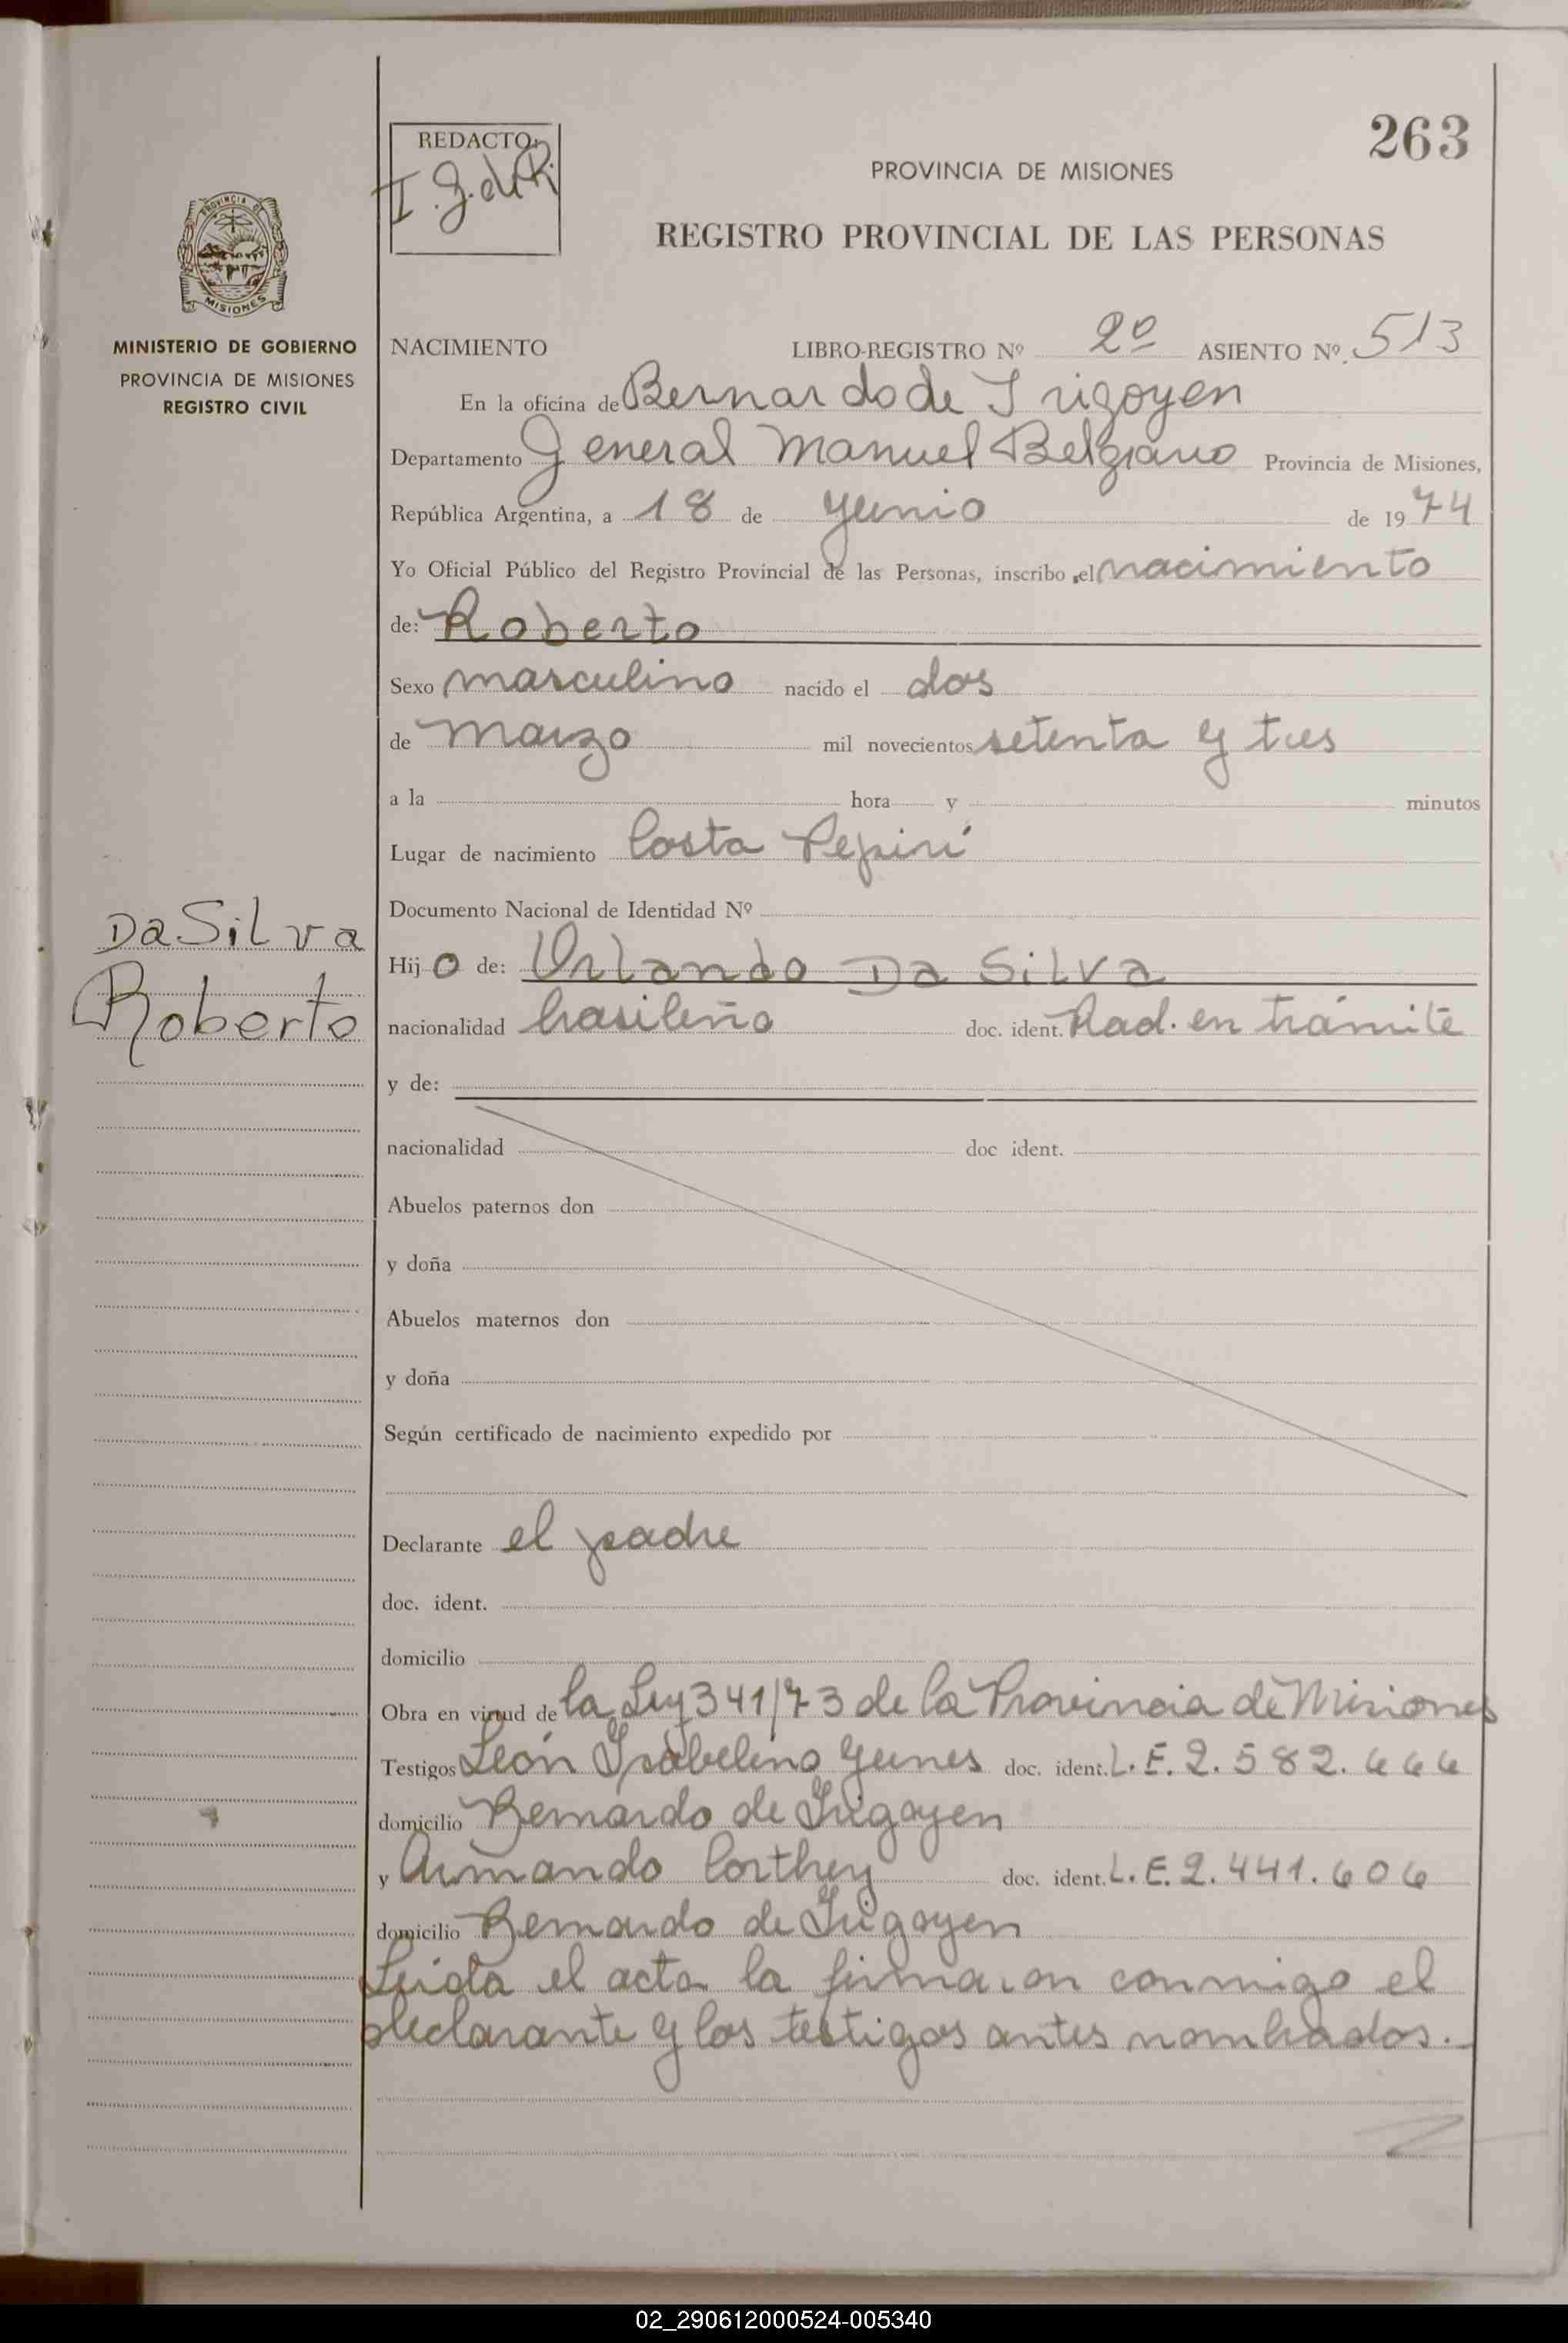 263
REDACTO:
I. G. de R.
PROVINCIA DE MISIONES
REGISTRO PROVINCIAL DE LAS PERSONAS
PROVINCIA DE
MISIONES
MINISTERIO DE GOBIERNO
PROVINCIA DE MISIONES
REGISTRO CIVIL
NACIMIENTO LIBRO-REGISTRO Nº 2º ASIENTO Nº. 513
En la oficina de Bernardo de Irigoyen
Departamento General Manuel Belgrano Provincia de Misiones,
República Argentina, a 18 de Junio de 1974
Yo Oficial Público del Registro Provincial de las Personas, inscribo el nacimiento
de: Roberto
Sexo masculino nacido el dos
de marzo mil novecientos setenta y tres
a la hora y minutos
Lugar de nacimiento Costa Pepirí
Documento Nacional de Identidad Nº
Da Silva
Roberto
Hijo de: Orlando Da Silva
nacionalidad brasileño doc. ident. Rad. en trámite
y de:
nacionalidad doc ident.
Abuelos paternos don
y doña
Abuelos maternos don
y doña
Según certificado de nacimiento expedido por
Declarante el padre
doc. ident.
domicilio
Obra en virtud de la Ley 341/73 de la Provincia de Misiones
Testigos León Isabelino Yunes doc. ident. L.E. 2.582.666
domicilio Bernardo de Irigoyen
y Armando Corthey doc. ident. L.E. 2.441.606
domicilio Bernardo de Irigoyen
Leída el acta la firmaron conmigo el
declarante y los testigos antes nombrados.
02_290612000524-005340